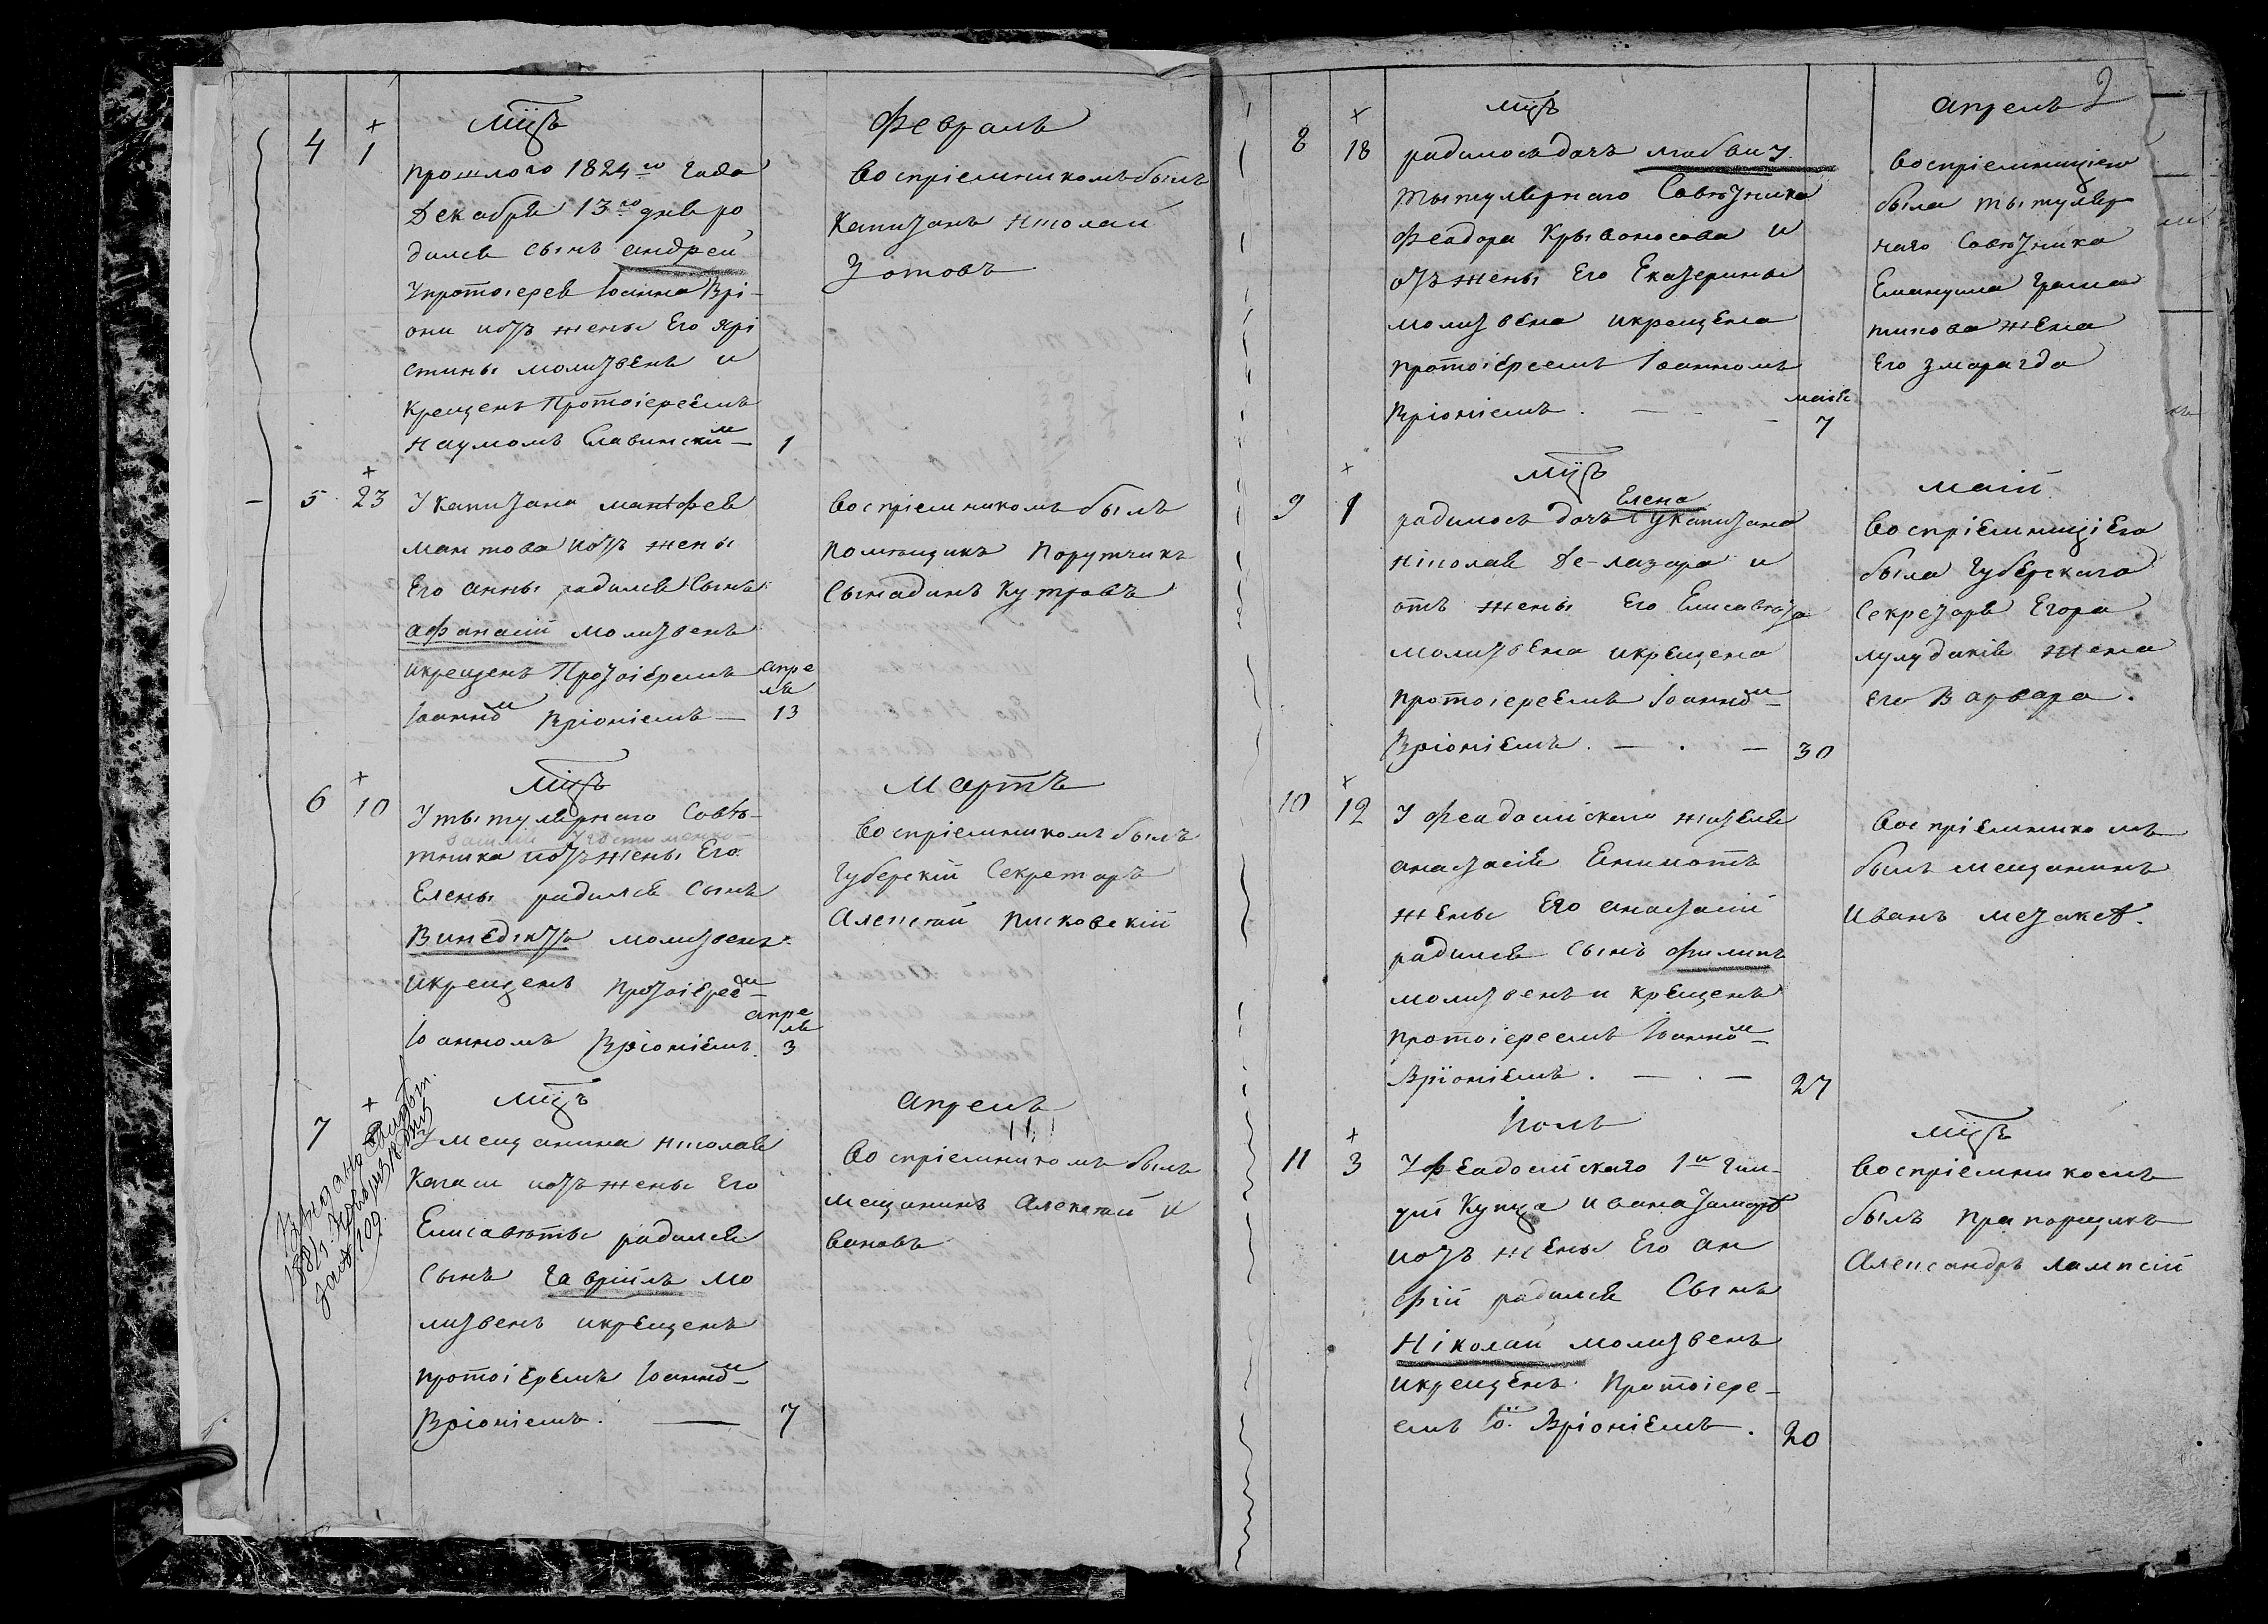 мцъ
Февраль
4 1 прошлого 1824го года
Декабря 13го дня ро
дился сынъ андрей
У протоіерея Іоанна Врі-
они иотъ жены Его Хрі
стины молитвенъ и
крещенъ Протоіереемъ
Наумомъ Славинским — 1
Воспріемникомъ былъ
Капитанъ Николай
Зотовъ
5 23 У капитана матфея
мантова иотъ жены
Его анны радился Сынъ
афанасій молитвенъ
икрещенъ Протоіереемъ апре
ля
Іоанном Вріоніемъ — 13
Воспріемникомъ былъ
помещикъ Порутчикъ
Сынадинъ Кутровъ
мцъ
Мартъ
6 10 У тытулярнаго Совѣ-
тника иотъ жены Его
Елены радился Сынъ
Винедіктъ молитвенъ
икрещенъ протоіерее м
апре
ля
Іоанномъ Вріоніемъ 3
Воспріемникомъ былъ
Губерскій Секретарь
Алексѣй Писковскій
мцъ
апрель
7 У мещанина николая
Качаси иотъ жены Его
Елисавѣты радился
сынъ гавріилъ мо
литвенъ икрещенъ
протоіеремъ Іоанном
Вріоніемъ. — 7
Воспріемникомъ былъ
мещанинъ Алексѣй И
вановъ
2
мцъ
апрель
8 18 радилось дочь
тытулярнаго Совѣтника
Феадора Крывоносова и
отъ жены Его Екатерины
молитвена икрещена
протоіереемъ Іоанномъ
маія
Вріоніемъ. — — 7
Воспріемницею
была тытуляр
наго Совѣтника
Емануила
жена
Его Змарагда
мцъ
маій
Елена
9 1 радилось дочь у капитана
Ніколая Де-лазари и
отъ жены Его Елисавѣты
молитвена икрещена
протоіереемъ Іоанном
Вріоніемъ. — . — 30
Воспріемницеіею
была Губерскаго
Секретаря Егора
лулудакія жена
Его Варвара.
10 12 У Феадосійскаго жителя
анастасія отъ
жены Его анастасіи
радился сынъ филипъ
молитвенъ и крещенъ
протоіереемъ Іоанном
Вріоніемъ. — . — 27
Воспріемникомъ
былъ мещанинъ
Иванъ
Іюль
мцъ
11 3 У феадосійскаго 1й гил-
діи Купца ивана
иотъ жены Его ан
фіи радился Сынъ
Ніколай молитвенъ
икрещенъ Протоіере-
емъ Іо. Вріоніемъ. 20
Воспріемникомъ
былъ прапорщикъ
Александръ Лампсій